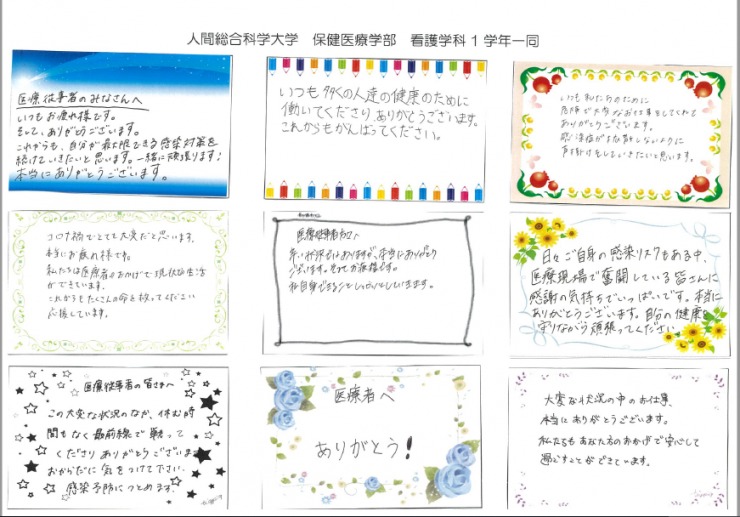 人間総合科学大学　保健医療学部　看護学科１学年一同
医療従事者のみなさんへ
いつもお疲れ様です。
そして、ありがとうございます。
これからも、自分が最大限できる感染対策を
続けていきたいと思います。一緒に頑張ります！
本当にありがとうございます。
いつも多くの人達の健康のために
働いてくださりありがとうございます。
これからもがんばってください。
いつも私たちのために
危険で大変なお仕事をしてくれて
ありがとうございます。
感染症が
声掛けをしていきたいと思います。
コロナ禍でとても大変だと思います。
本当にお疲れ様です。
私たちは医療者のおかげで現状な生活
ができています。
これからもたくさんの命を救ってください
応援しています。
医療従事者の方へ
本当にありがとう
ございます。
日々ご自身の感染リスクもある中、
医療現場で奮闘している皆さんに
感謝の気持ちでいっぱいです。本当に
ありがとうございます。自分の健康も
守りながら頑張ってください。
医療従事者の皆さまへ
この大変な状況のなか、休む時
間もなく最前線で戦って
くださりありがとうございます
おからだに気をつけて下さい。
感染予防につとめます。
医療者へ
ありがとう！
大変な状況の中のお仕事、
本当にありがとうございます。
私たちもあなた方のおかげで安心して
過ごすことができています。